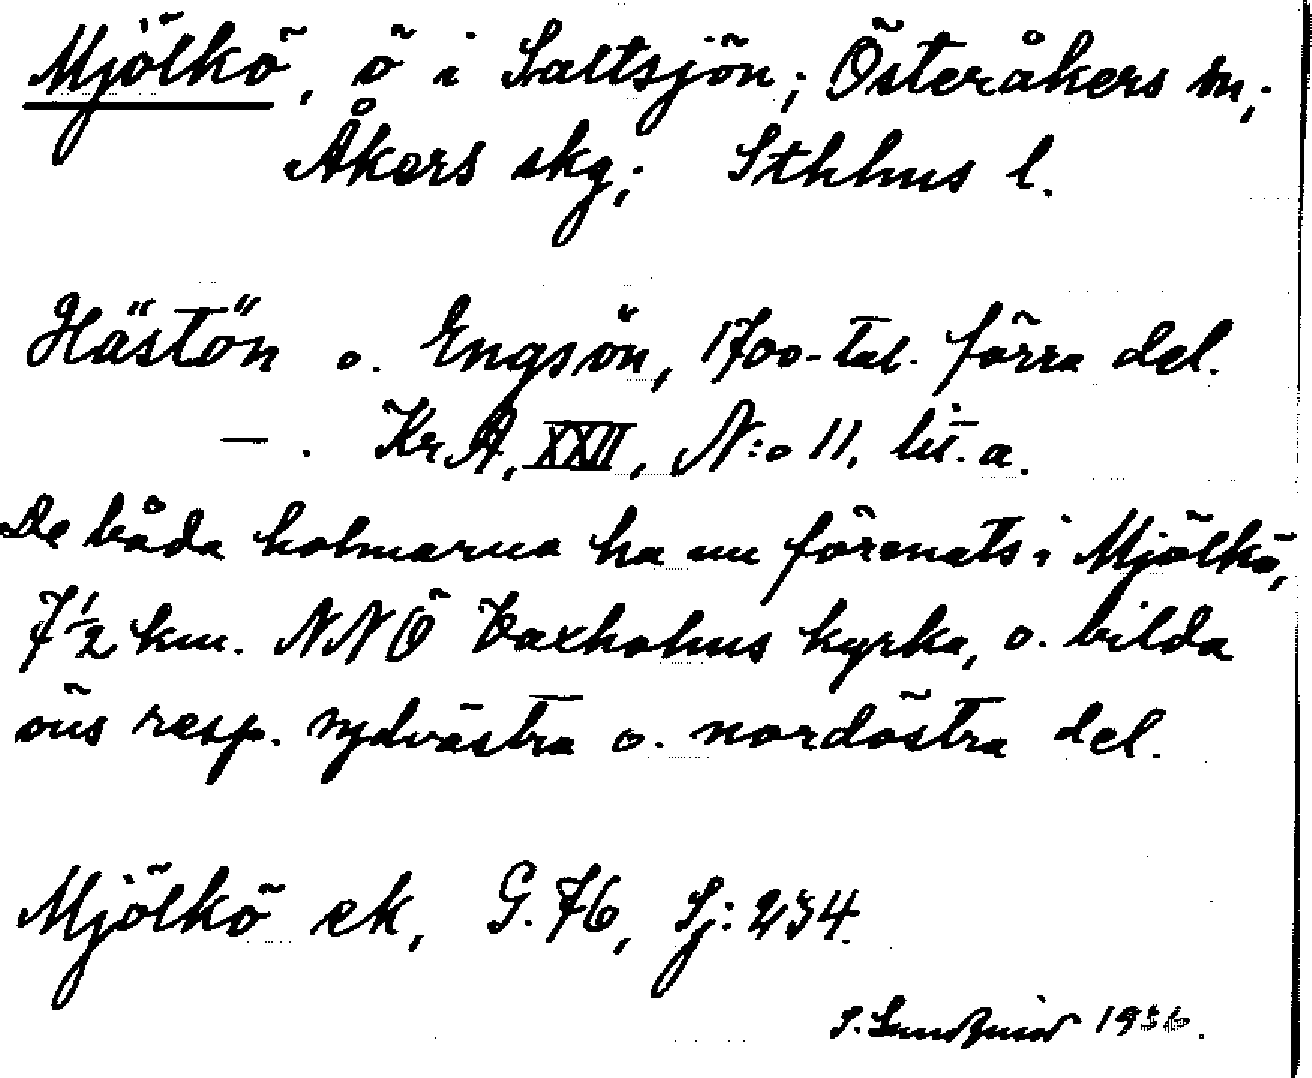 Mjölkö, ö i Saltsjön; Österåkers sn;
Åkers skg; Sthlms l.
Hästön o. Engsön, 1700-tal. förra del.
— . KrA, XXII, N:o 11, lit. a.
De båda holmarna ha nu förenats i Mjölkö,
7 1/2 km. NNÖ Vaxholms kyrka, o. bilda
öns resp. sydvästra o. nordöstra del.
Mjölkö ek, G. 76, Sj: 234.
1936.